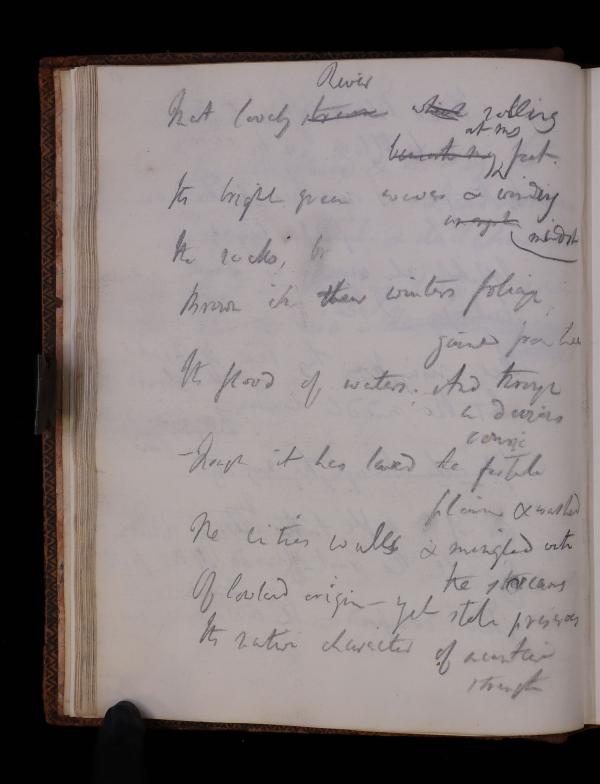 River
That lovely stream which rolling
at my
beneath my feet.
Its bright green waves & winding
amongst midst
the rocks, br
Brown in their winters foliage
gained from thee
Its flood of waters. And though
a devious
course
Though it has laved the fertile
plains & washed
The cities walls & mingled with
the streams
Of lowland origin – yet still preserves
Its native character of mountain
strength